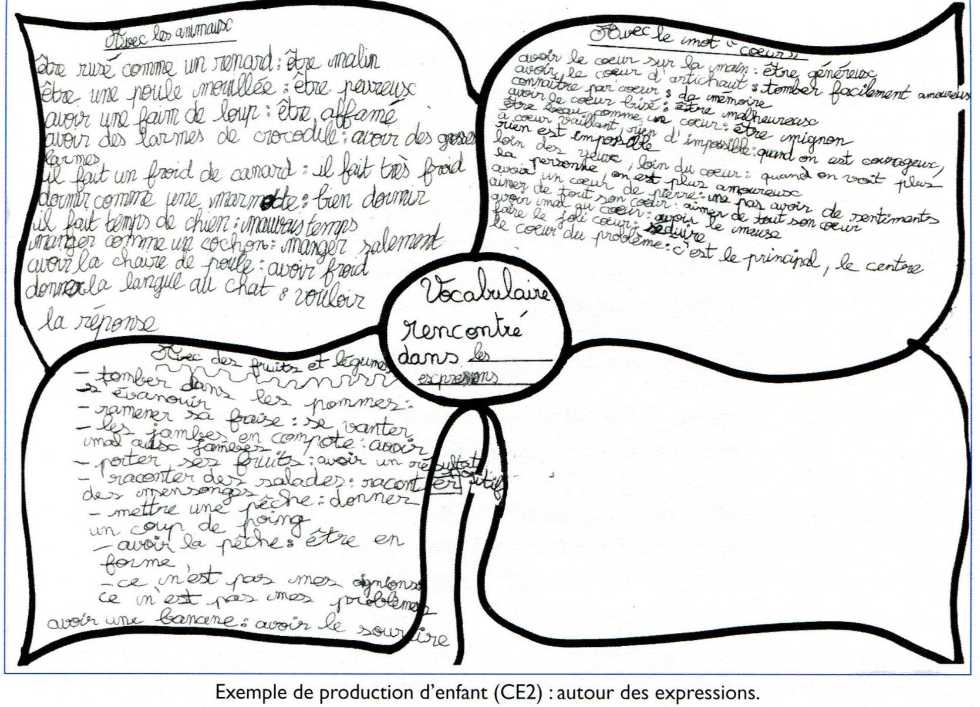 Avec les animaux
être rusé comme un renard : être malin
être une poule mouillée : être peureux
avoir une faim de loup : être affamé
avoir des larmes de crocodile : avoir des grosses
larmes
il fait un froid de canard : il fait très froid
dormir comme une marmotte : bien dormir
il fait temps de chien : mauvais temps
manger comme un cochon : manger salement
avoir la chaire de poule : avoir froid
donner la langue au chat : vouloir
la réponse
Avec le mot "coeurs"
avoir le coeur sur la main : être généreux
avoir le coeur d'artichaut : tomber facilement amoureux
connaître par coeur : de mémoire
avoir le coeur brisé : être malheureux
être beau comme un coeur : être mignon
à coeur vaillant, rien d'impossible : quand on est courageux,
rien est impossible
loin des yeux, loin du coeur : quand on voit plus
la personne, on est plus amoureux
avoir un coeur de pierre : une pas avoir de sentiments
aimer de tout son coeur : aimer de tout son coeur
avoir mal au coeur : avoir le mause
faire le joli coeur : séduire
le coeur du problème : c'est le principal, le centre
Vocabulaire
rencontré
dans les
expressions
Avec des fruits et légumes
- tomber dans les pommes :
s'évanouir
- ramener sa fraise : se vanter
- les jambes en compote : avoir
mal aux jambes
- porter ses fruits : avoir un résultat
positif
- raconter des salades : raconter
des mensonges
- mettre une pêche : donner
un coup de poing
- avoir la pêche : être en
forme
- ce n'est pas mes oignions
ce n'est pas mes problèmes
avoir une banane : avoir le sourire
Exemple de production d'enfant (CE2) : autour des expressions.